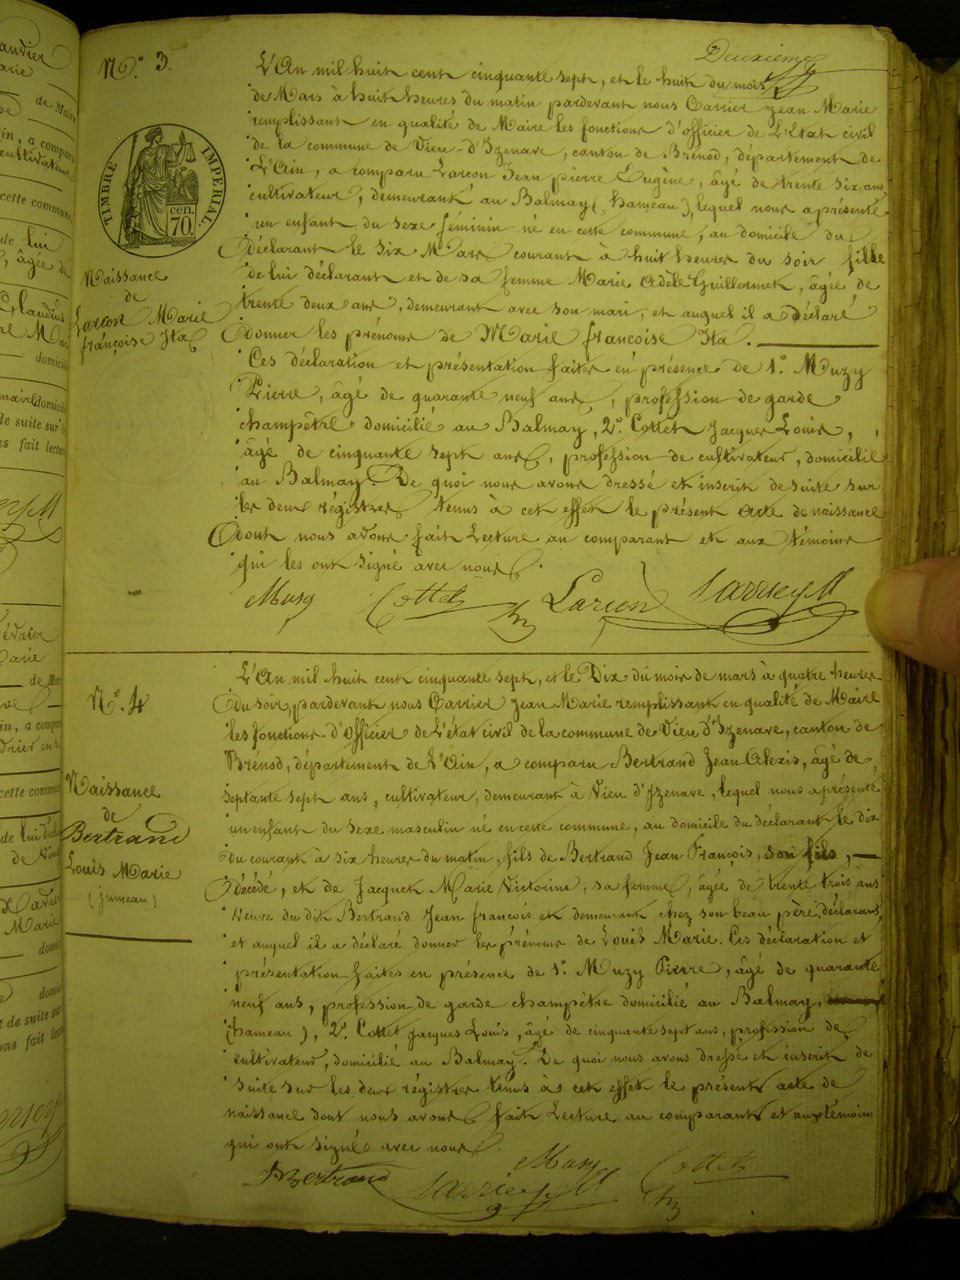 Deuxième
N.° 3.
TIMBRE IMPERIAL.
cen. 70.
Naissance
de
Larçon Marie
françoise Ita
L'An mil huit cent cinquante sept, et le huit du mois
de Mars à huit heures du matin pardevant nous Carrier Jean Marie
remplissant en qualité de Maire les fonctions d'officier de L'Etat civil
de la commune de Vieu-d'Izenave, canton de Brénod, département de
L'Ain, a comparu Larçon Jean pierre Eugène, âgé de trente six ans
cultivateur, demeurant au Balmay (hameau), lequel nous a présenté
un enfant du sexe féminin né en cette commune, au domicile du
Déclarant le six Mars courant à huit heures du soir fille
de lui déclarant et de sa femme Marie Adèle Guillermet, âgée de
trente deux ans, demeurant avec son mari, et auquel il a Déclaré
Donner les prénoms de Marie françoise Ita.
Ces déclaration et présentation faites en présence de 1.° Muzy
Pierre, âgé de quarante neuf ans, profession de garde
champêtre domicilié au Balmay, 2.° Cottet Jacques Louis,
âgé de cinquante sept ans, profession de cultivateur, domicilié
au Balmay. De quoi nous avons dressé et inscrit de suite sur
les deux régistres tenus à cet effet le présent acte de naissance
Dont nous avons fait Lecture au comparant et aux témoins
qui les ont signé avec nous.
Muzy Cottet Larçon Carrier JM
N.° 4
Naissance
de
Bertrand
Louis Marie
(jumeau)
L'An mil huit cent cinquante sept, et le Dix du mois de mars à quatre heures
Du soir, pardevant nous Carrier Jean Marie remplissant en qualité de Maire
les fonctions d'Officier de L'état civil de la commune de Vieu d'Izenave, canton de
Brénod, département de L'Ain, a comparu Bertrand Jean Alexis, âgé de
septante sept ans, cultivateur, demeurant à Vieu d'Izenave, lequel nous a présenté
un enfant du sexe masculin né en cette commune, au domicile du déclarant le dix
du courant à six heures du matin, fils de Bertrand Jean François, son fils,
Décédé, et de Jacquet Marie Victorine, sa femme, âgée de trente trois ans
veuve du dit Bertrand Jean françois et demeurant chez son beau père, déclarant,
et auquel il a déclaré donner les prénoms de Louis Marie. Ces déclaration et
présentation faites en présence de 1.° Muzy Pierre, âgé de quarante
neuf ans, profession de garde champêtre domicilié au Balmay,
(hameau), 2.° Cottet Jacques Louis, âgé de cinquante sept ans, profession de
cultivateur, domicilié au Balmay. De quoi nous avons dressé et inscrit de
suite sur les deux régistres tenus à cet effet le présent acte de
naissance dont nous avons fait Lecture au comparant et aux témoins
qui ont signé avec nous.
Bertrand Carrier JM Muzy Cottet